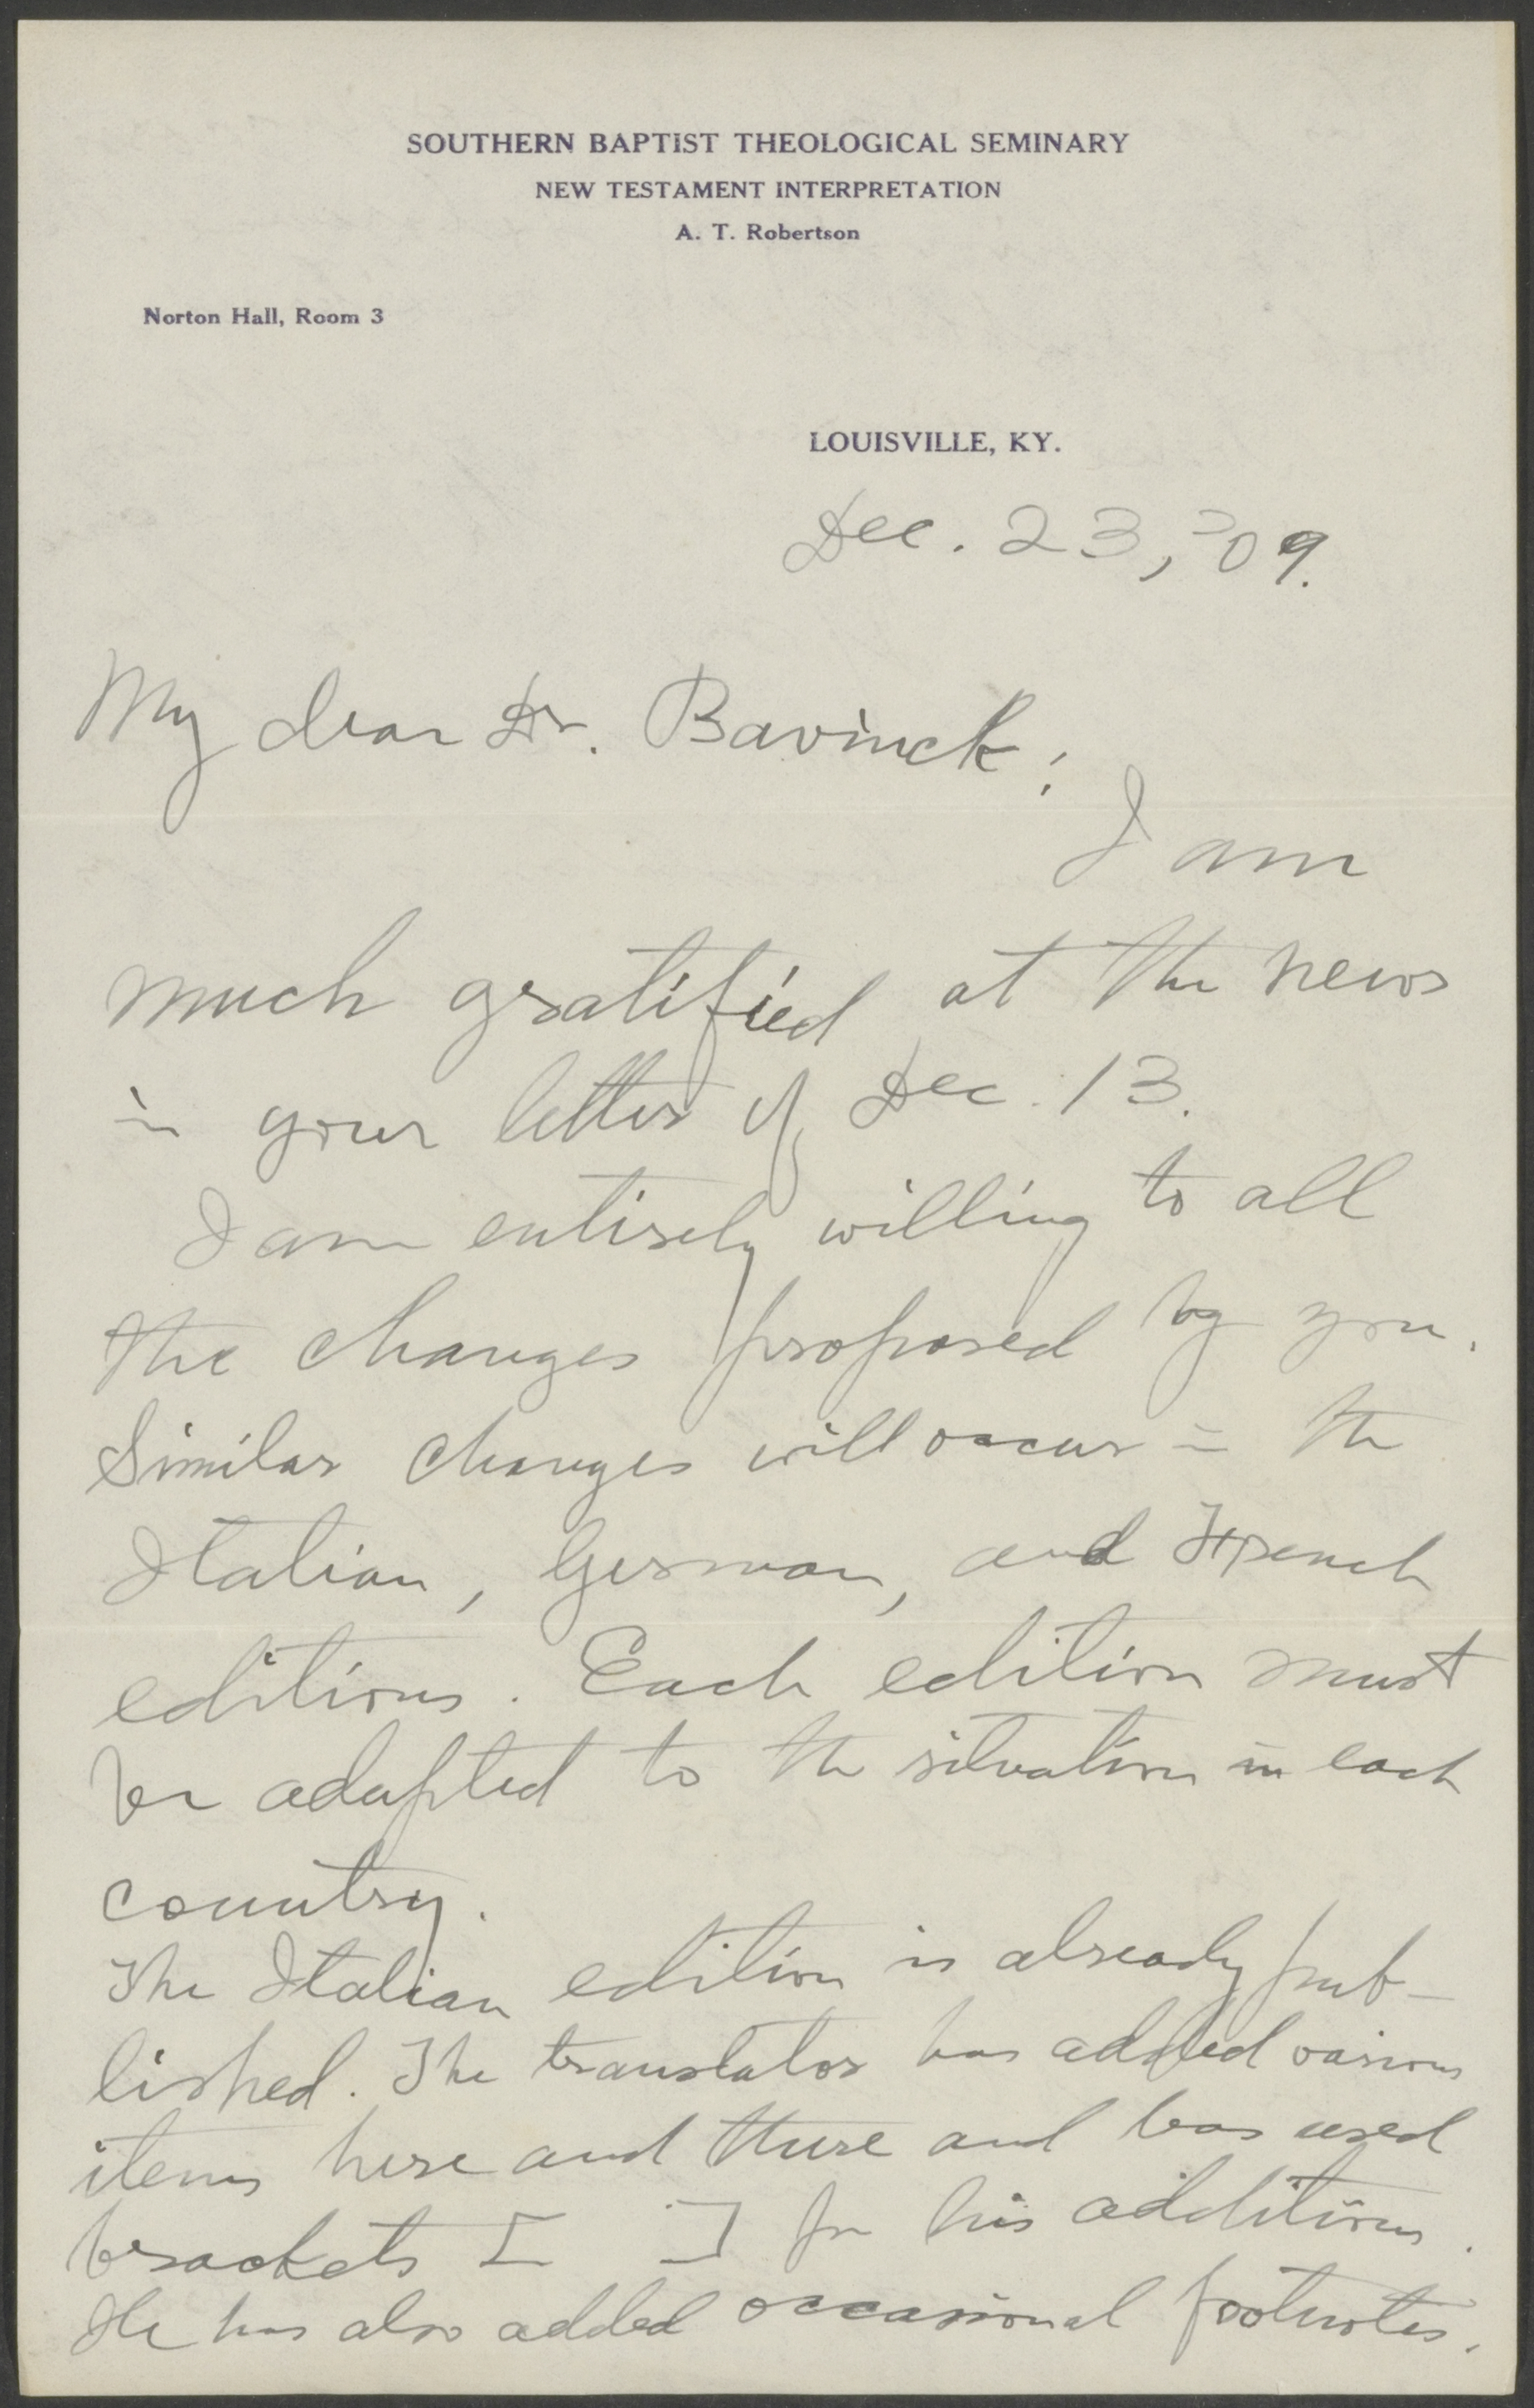 SOUTHERN BAPTIST THEOLOGICAL SEMINARY
NEW TESTAMENT INTERPRETATION
A. T. Robertson
Norton Hall, Room 3
LOUISVILLE, KY.
Dec. 23, '09.
My dear Dr. Bavinck:
I am
much gratified at the news
in your letter of Dec. 13.
I am entirely willing to all
the changes proposed by you.
Similar changes will occur in the
Italian, German, and French
editions. Each edition must
be adapted to the situation in each
country.
The Italian edition is already pub-
lished. The translator has added various
items here and there and has used
brackets [ ] for his additions.
He has also added occasional footnotes.